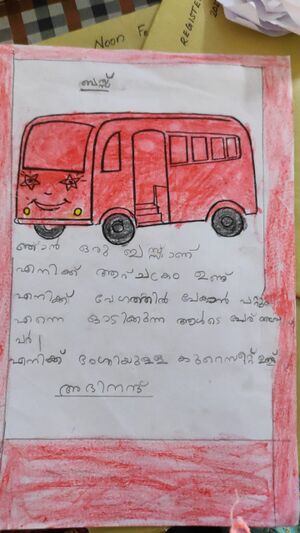 Noon Fe
REGISTE
ബസ്സ്
ഞാൻ ഒരു ബസ്സാണ്
എനിക്ക് ആറ് ചക്രം ഉണ്ട്
എനിക്ക് വേഗത്തിൽ പോകാൻ പറ്റും
എന്നെ ഓടിക്കുന്ന ആളുടെ പേര്
എനിക്ക് ഭംഗിയുള്ള കുറെസീറ്റ് ഉണ്ട്
അഭിനന്ദ്